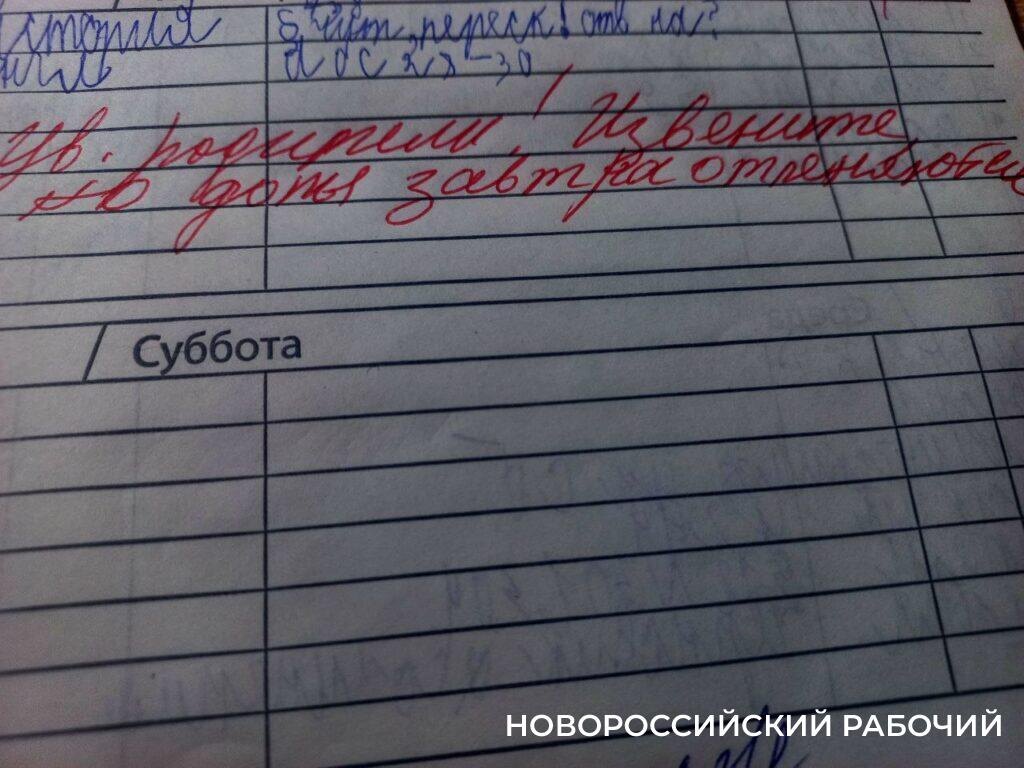 стория § чит, переск! отв на?
с 28-30
Ув. родители! Извените,
но допы завтра отменяются
Суббота
НОВОРОССИЙСКИЙ РАБОЧИЙ